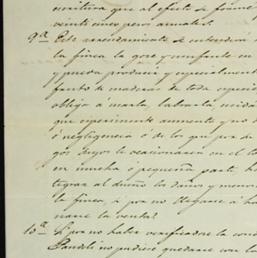 escritura que al efecto se forme
veinticinco pesos anuales.
9ª Este arrendamiento se entenderá
la finca la goce y usufructe en
y pueda producir y especialmente
fruto de maderas de toda especie
obliga á
que esperimente aumente y no d
ó negligencia ó de los que por s
gos suyos le ocasionaren en el t
en mucha ó pequeña parte h
tegrar al dueño los daños y menos
la finca, si por no llegare á h
narse la venta.
10ª Si por no haber verificadose la con
no pudiere quedarse con la